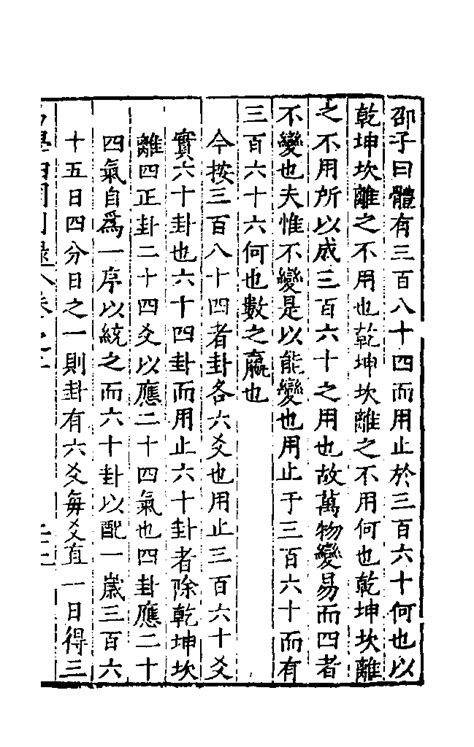 邵子曰體有三百八十四而用止於三百六十何也以
乾坤坎離之不用也乾坤坎離之不用何也乾坤坎離
之不用所以成三百六十之用也故萬物變易而四者
不變也夫惟不變是以能變也用止于三百六十而有
三百六十六何也數之贏也
今按三百八十四者卦各六爻也用止三百六十爻
實六十卦也六十四卦而用止六十卦者除乾坤坎
離四正卦二十四爻以應二十四氣也四卦應二十
四氣自爲一序以統之而六十卦以配一歲三百六
十五日四分日之一則卦有六爻每爻直一日得三